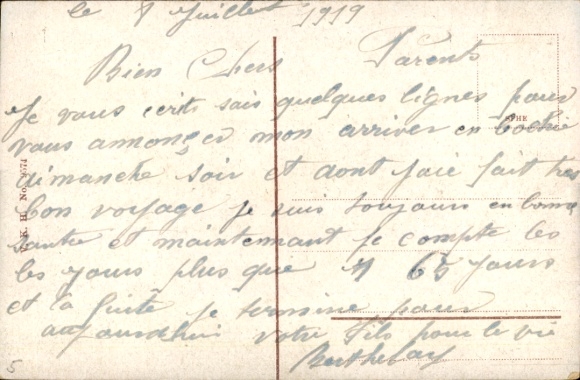 le 8 Juillet 1919
Bien Chers Parents
Je vous ecrit sais quelques lignes pour
vous annonçer mon arriver en bochie
dimanche soir et dont jaie fait tres
bon voyage je suis toujours en bonne
santre et maintenant je compte les
les jours plus que 65 jours
et la fuite je termine pour
aujourdhui votre fils pour le vie
Berthelay
5